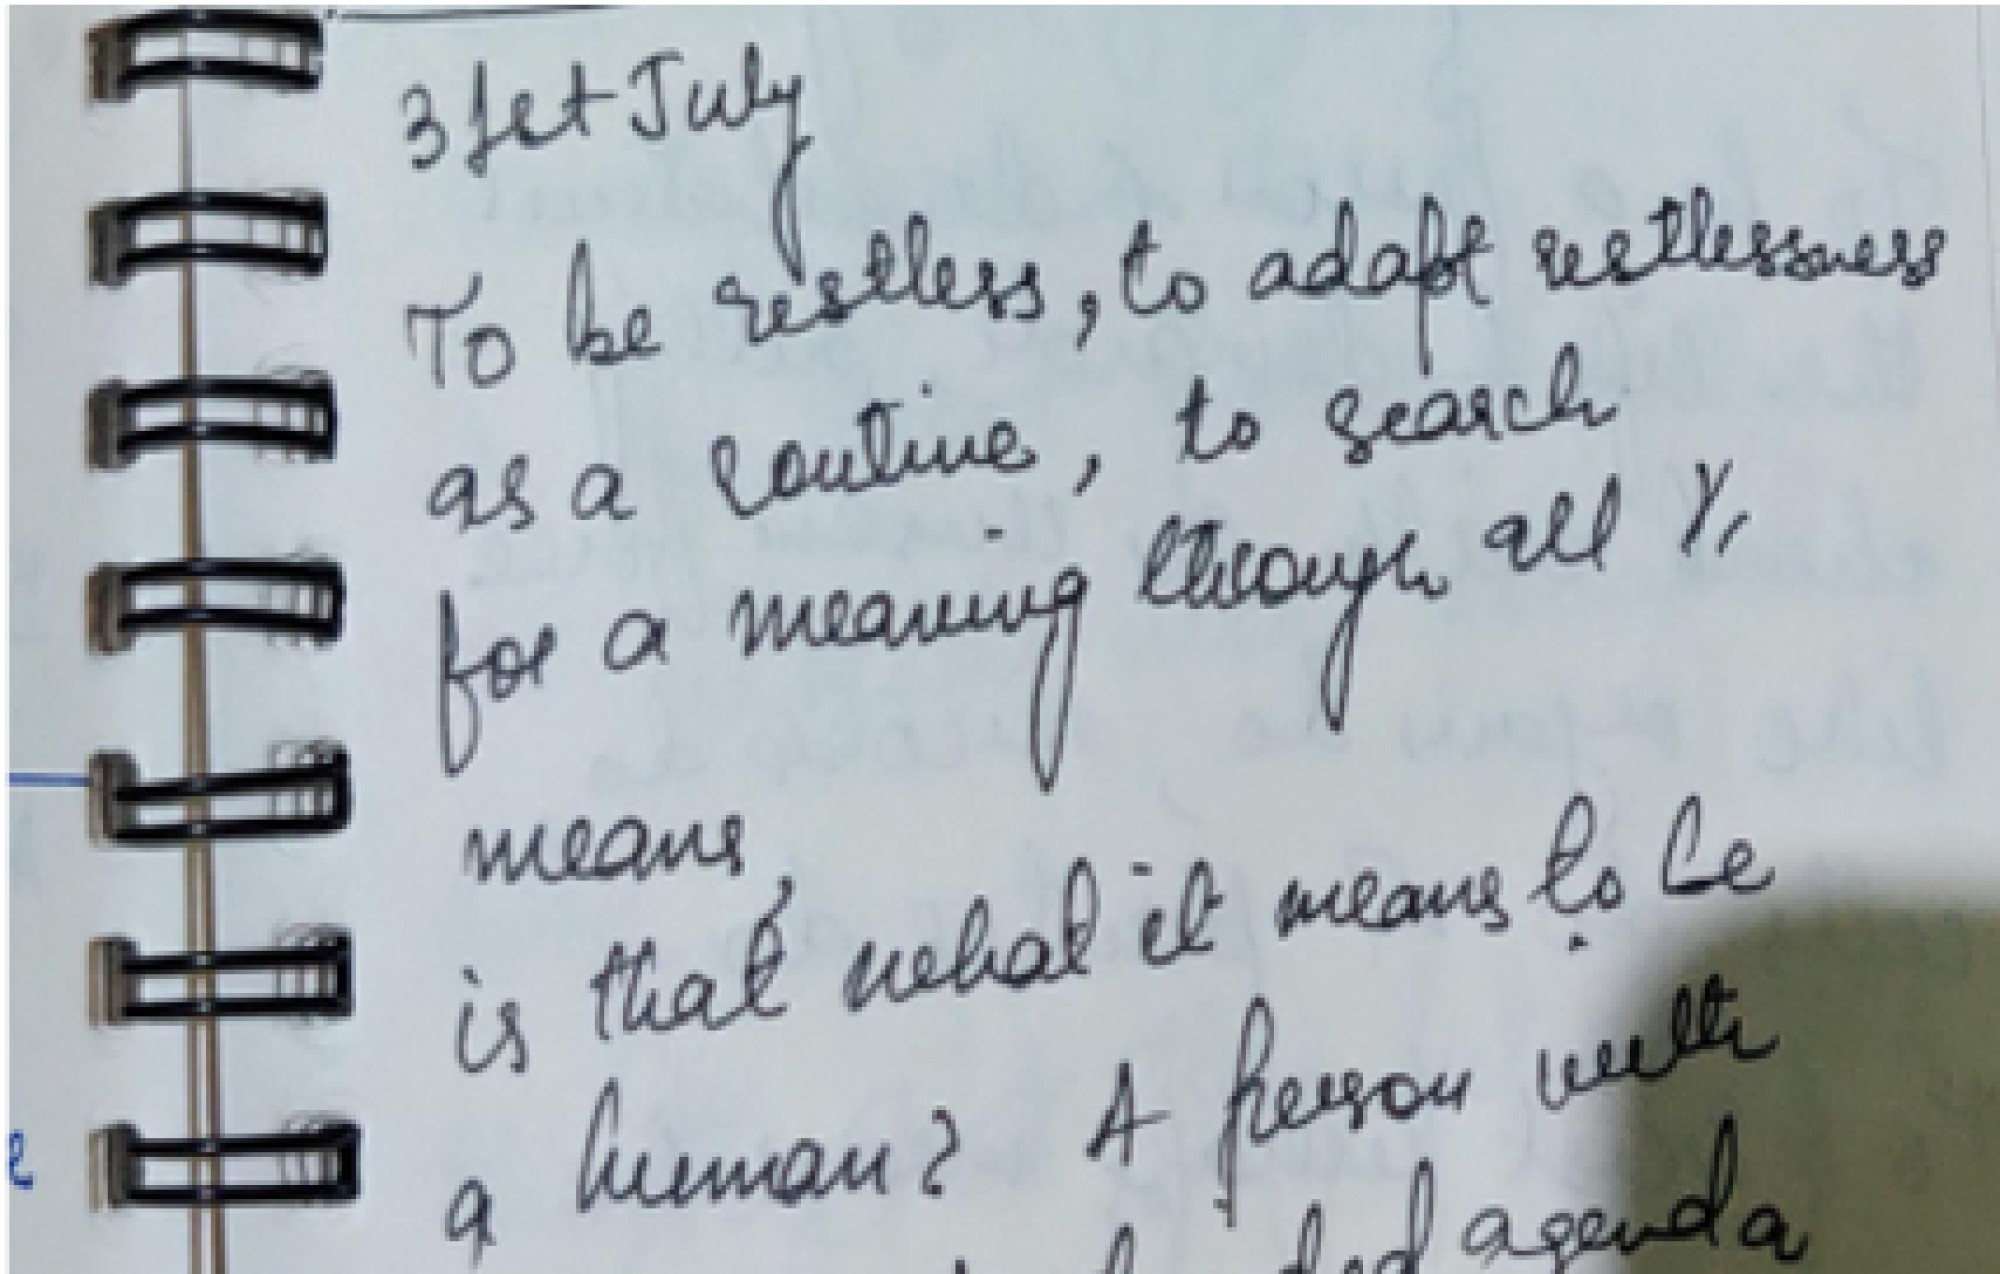 31st July
To be restless, to adapt restlessness
as a routine, to search
for a meaning through all
means,
is that what it means to be
a human? A person with
agenda